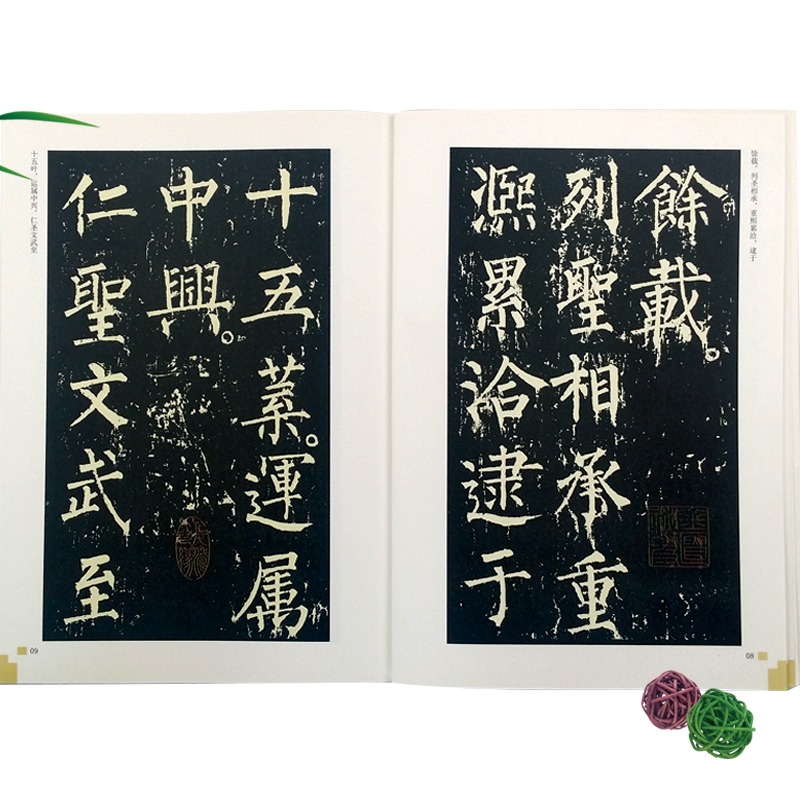 馀载。列圣相承，重熙累洽，逮于
餘載。
列聖相承重
熈累洽逮于
08
十五叶，运属中兴，仁圣文武至
十五葉。運属
中興。
仁聖文武至
09